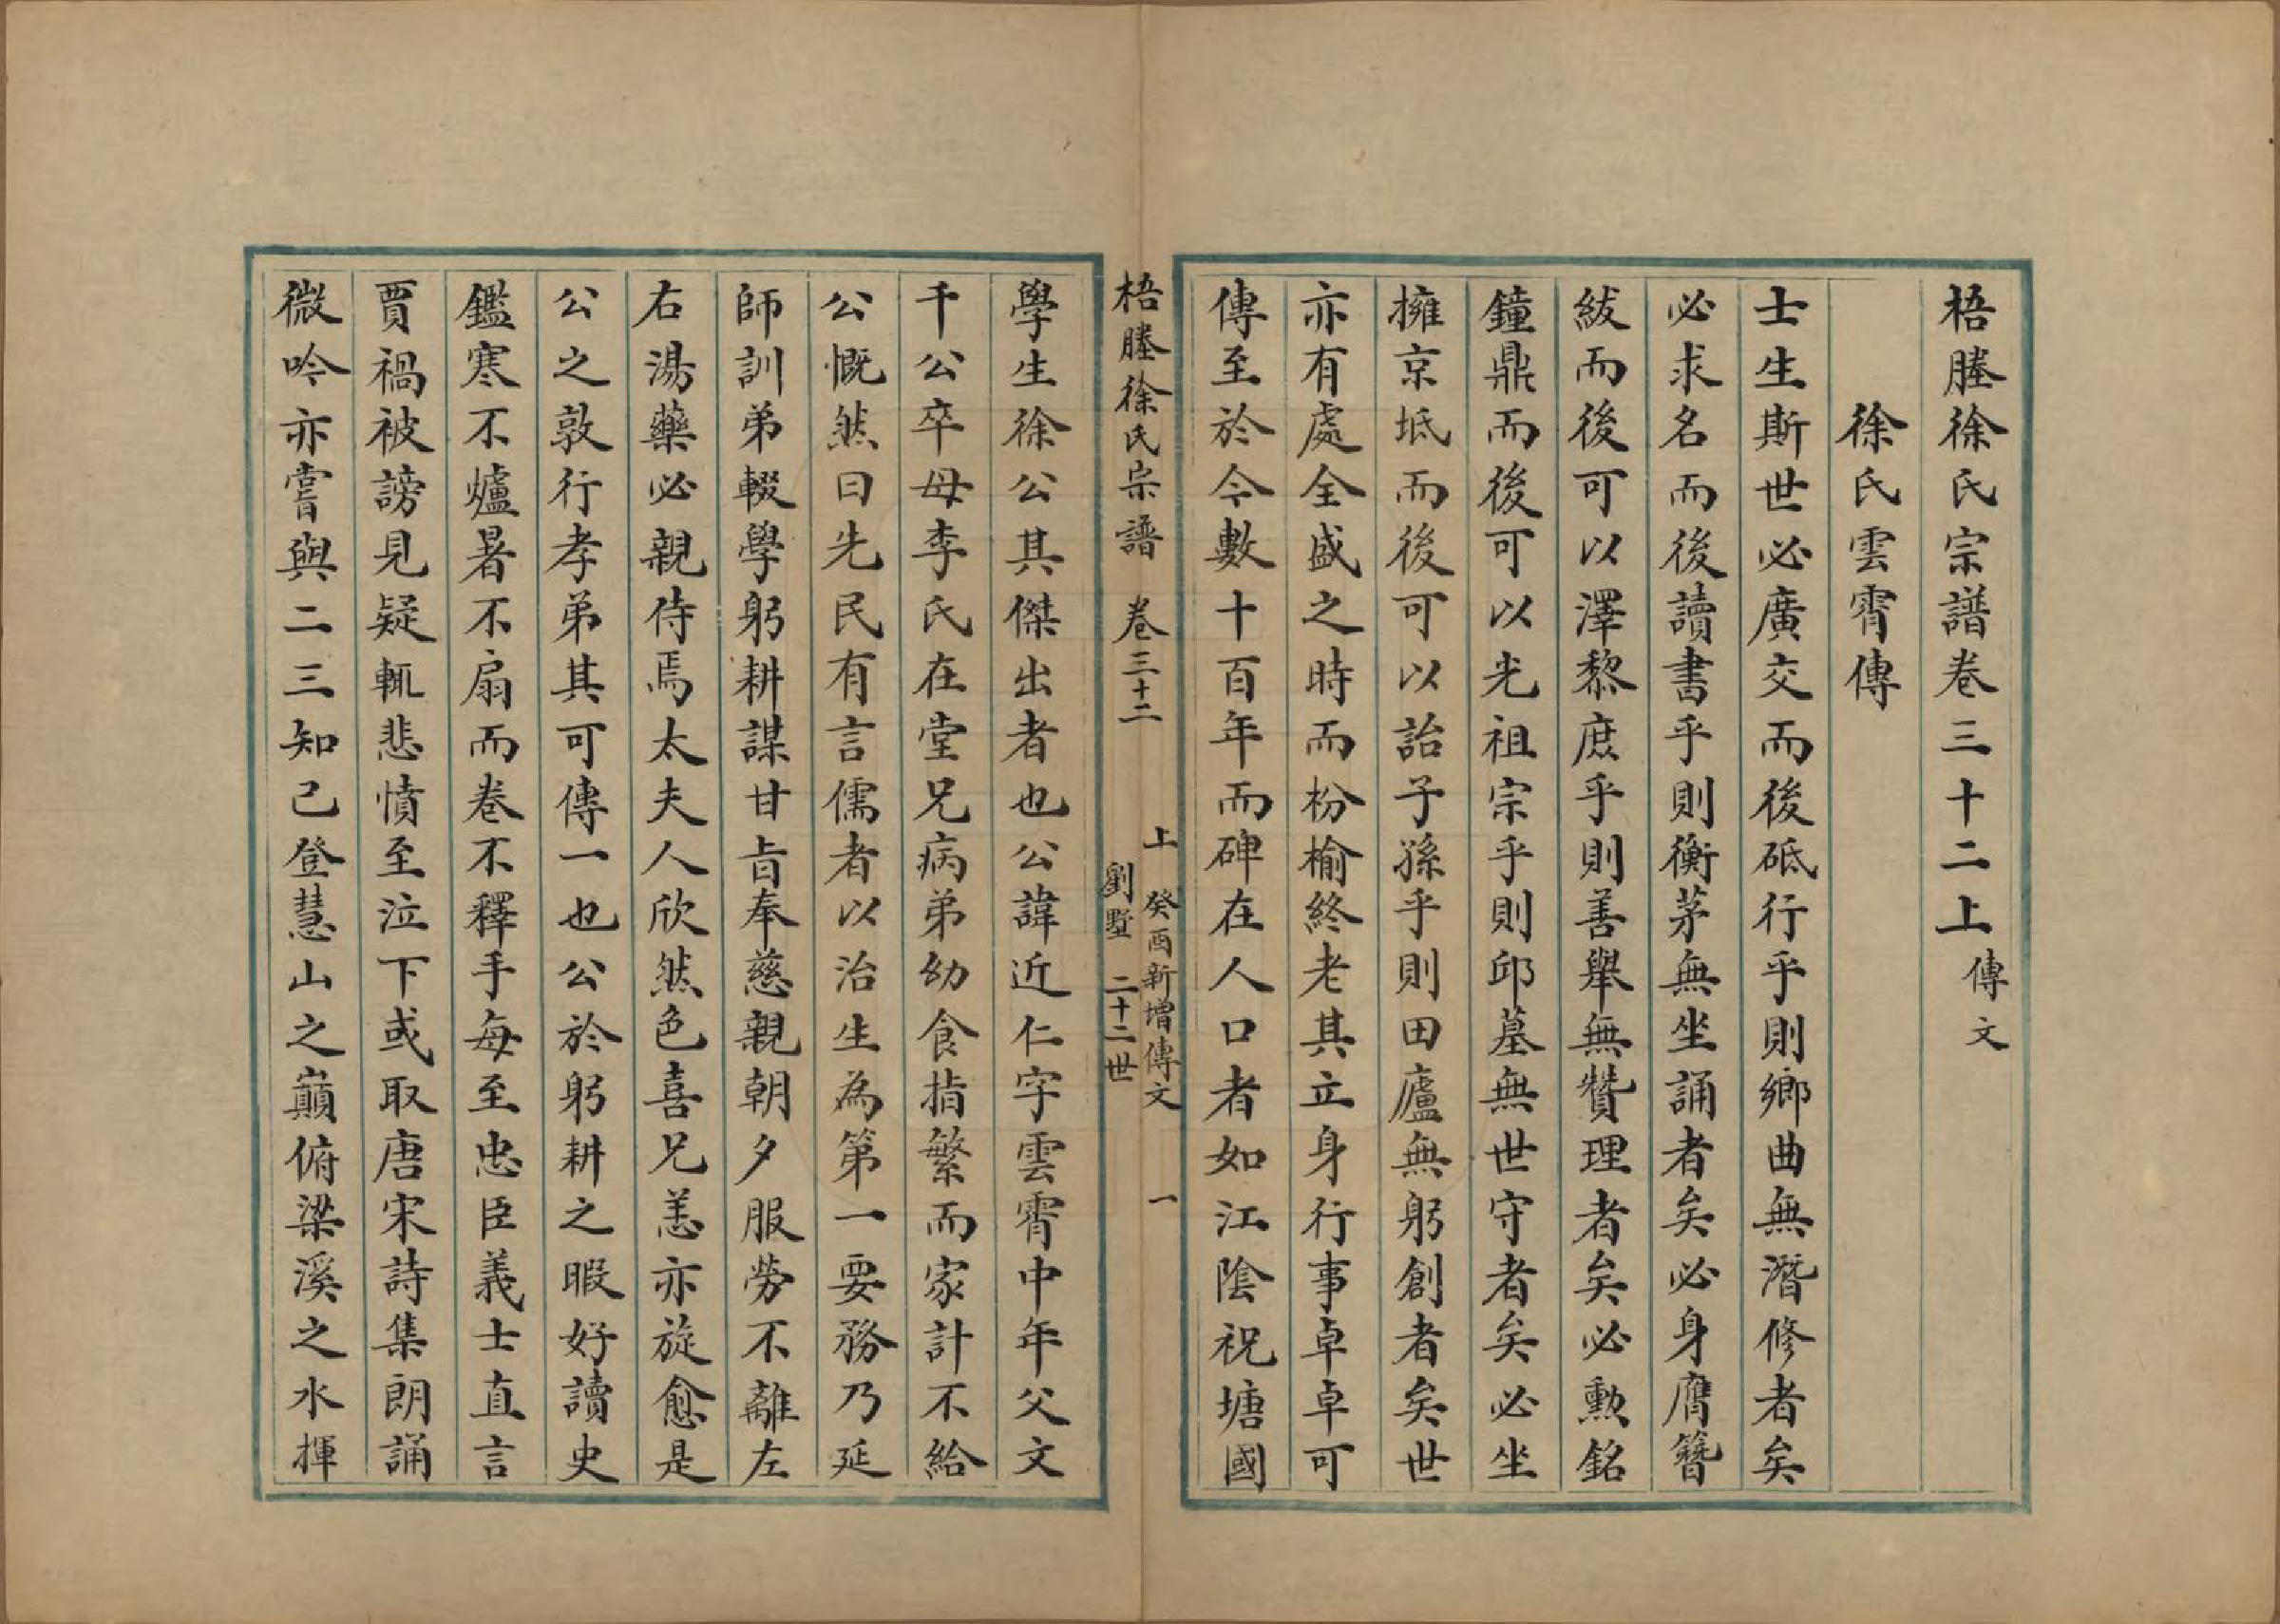 梧塍徐氏宗譜卷三十二上 傳文
徐氏雲霄傳
士生斯世必廣交而後砥行乎則鄉曲無潛修者矣
必求名而後讀書乎則衡茅無坐誦者矣必身膺簪
紱而後可以澤黎庶乎則善舉無贊理者矣必勲銘
鐘鼎而後可以光祖宗乎則邱墓無世守者矣必坐
擁京坻而後可以詒子孫乎則田廬無躬創者矣世
亦有處全盛之時而枌榆終老其立身行事卓卓可
傳至於今數十百年而碑在人口者如江陰祝塘國
梧塍徐氏宗譜 卷三十二 上 癸酉新增傳文 一
劉墅 二十二世
學生徐公其傑出者也公諱近仁字雲霄中年父文
千公卒母李氏在堂兄病弟幼食指繁而家計不給
公慨然曰先民有言儒者以治生為第一要務乃延
師訓弟輟學躬耕謀甘旨奉慈親朝夕服勞不離左
右湯藥必親侍焉太夫人欣然色喜兄恙亦旋愈是
公之敦行孝弟其可傳一也公於躬耕之暇好讀史
鑑寒不爐暑不扇而卷不釋手每至忠臣義士直言
賈禍被謗見疑輒悲憤至泣下或取唐宋詩集朗誦
微吟亦嘗與二三知己登慧山之巔俯梁溪之水揮